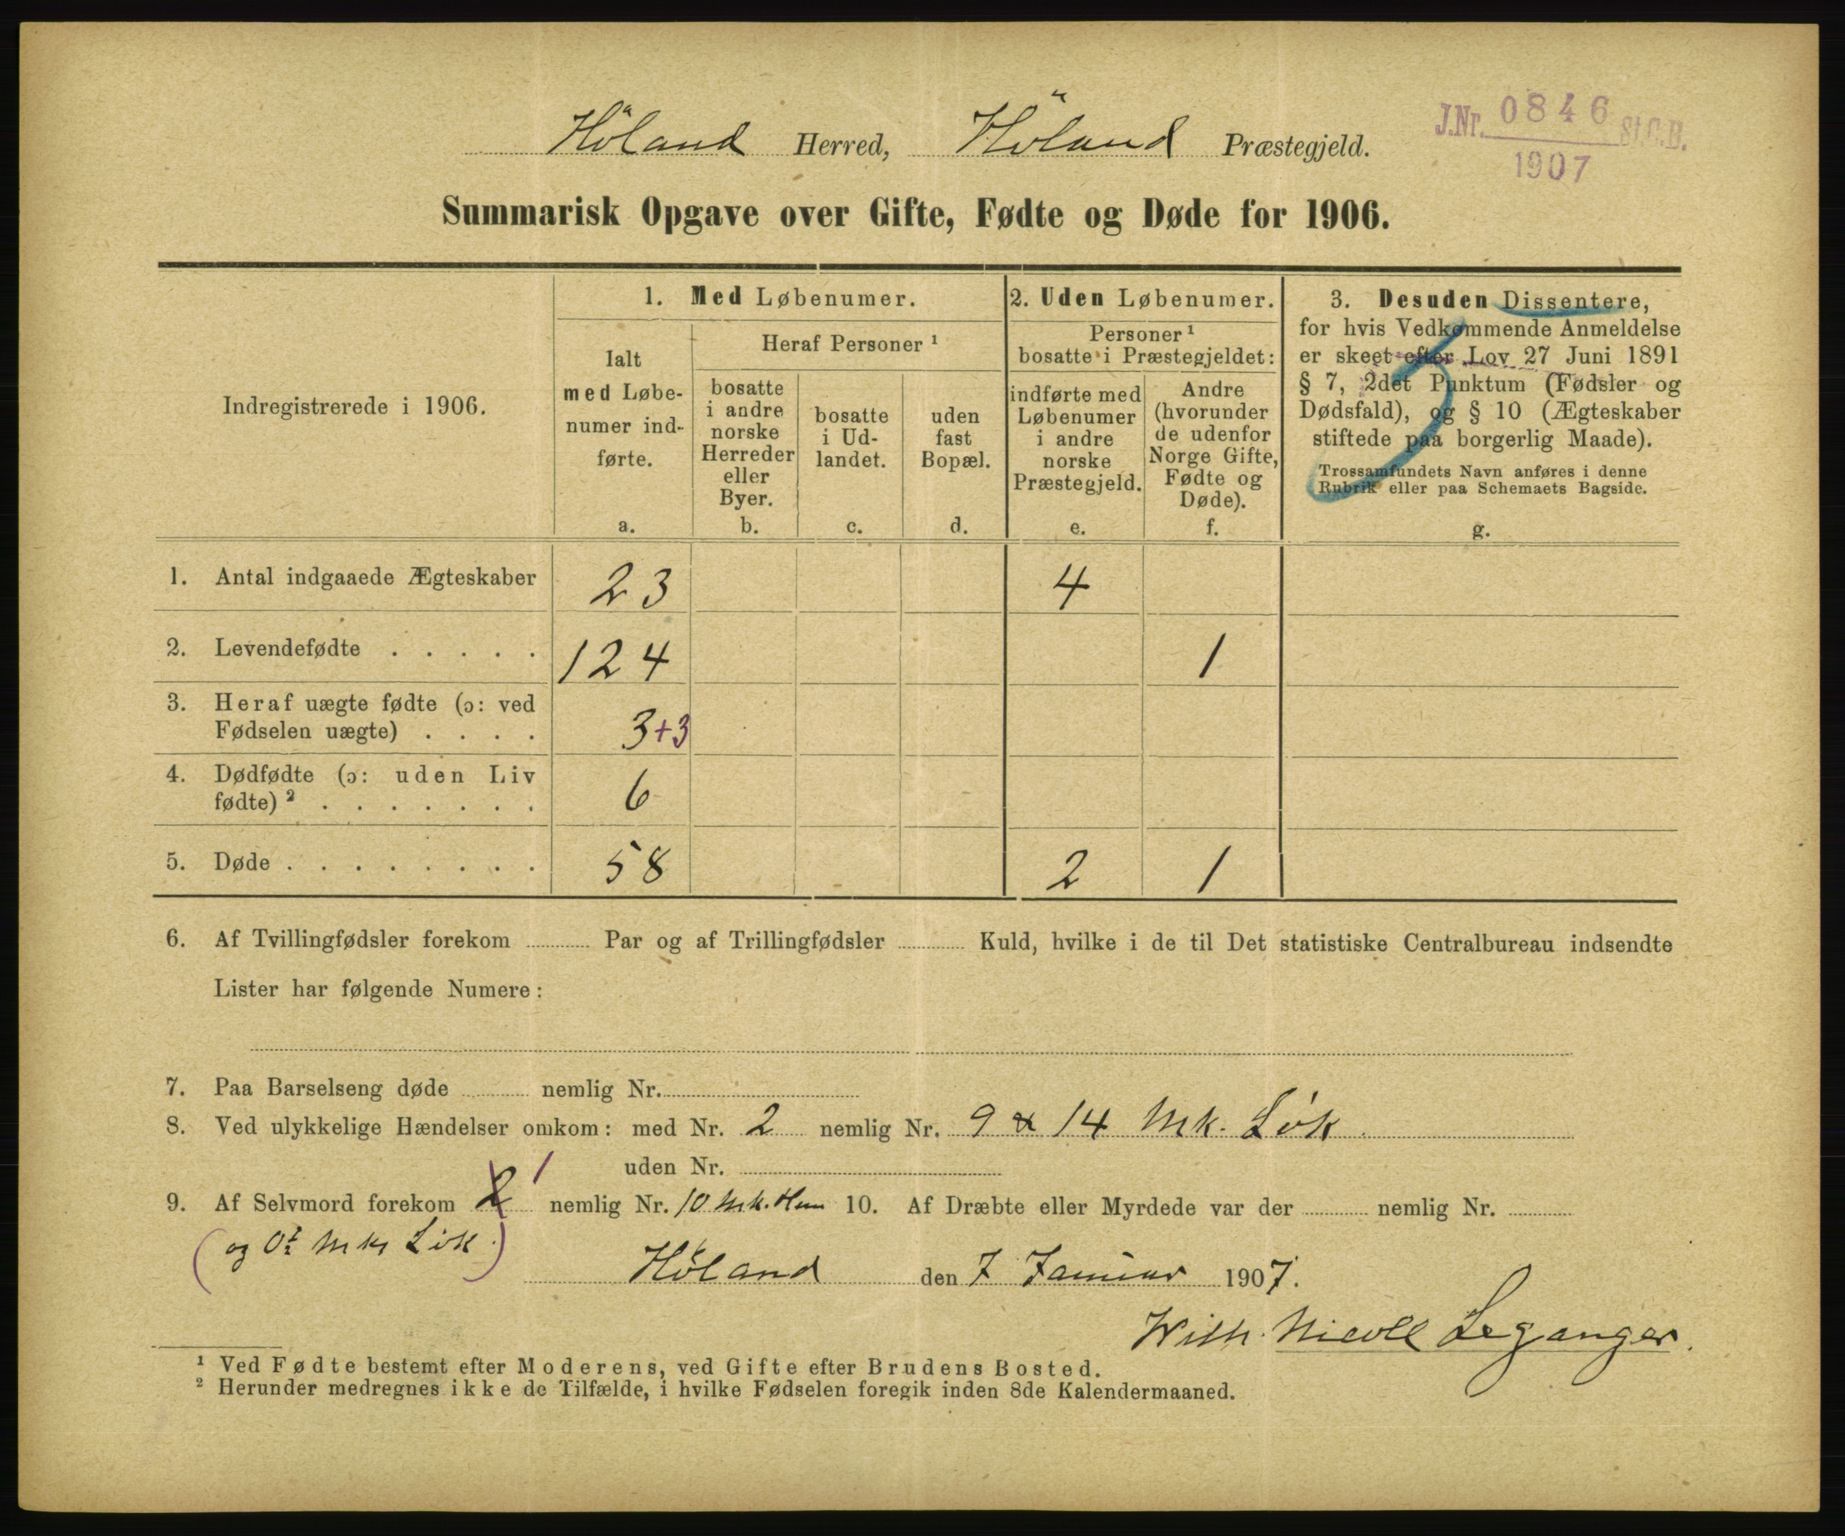 Höland Herred, Höland Præstegjeld.
J.Nr. 0846 St.C.B.
1907
Summarisk Opgave over Gifte, Fødte og Døde for 1906.
Indregistrerede i 1906.
1. Med Løbenumer.
Ialt
med Løbe-
numer ind-
førte.
a.
Heraf Personer ¹
bosatte
i andre
norske
Herreder
eller
Byer.
b.
bosatte
i Ud-
landet.
c.
uden
fast
Bopæl.
d.
2. Uden Løbenumer.
Personer ¹
bosatte i Præstegjeldet:
indførte med
Løbenumer
i andre
norske
Præstegjeld.
e.
Andre
(hvorunder
de udenfor
Norge Gifte,
Fødte og
Døde).
f.
3. Desuden Dissentere,
for hvis Vedkommende Anmeldelse
er skeet efter Lov 27 Juni 1891
§ 7, 2det Punktum (Fødsler og
Dødsfald), og § 10 (Ægteskaber
stiftede paa borgerlig Maade).
Trossamfundets Navn anføres i denne
Rubrik eller paa Schemaets Bagside.
g.
1. Antal indgaaede Ægteskaber 23 4
2. Levendefødte . . . . . 124 1
3. Heraf uægte fødte (ɔ: ved
Fødselen uægte) . . . . 3+3
4. Dødfødte (ɔ: uden Liv
fødte) ² . . . . . . . 6
5. Døde . . . . . . . . 58 2 1
6. Af Tvillingfødsler forekom Par og af Trillingfødsler Kuld, hvilke i de til Det statistiske Centralbureau indsendte
Lister har følgende Numere:
7. Paa Barselseng døde nemlig Nr.
8. Ved ulykkelige Hændelser omkom: med Nr. 2 nemlig Nr. 9 & 14 Mk. Løk.
uden Nr.
9. Af Selvmord forekom 2 1 nemlig Nr. 10 Mk. Hem 10. Af Dræbte eller Myrdede var der nemlig Nr.
(og Mk Løk.)
Høland den 7 Januar 1907.
Wilh. Nicoll Leganger.
¹ Ved Fødte bestemt efter Moderens, ved Gifte efter Brudens Bosted.
² Herunder medregnes ikke de Tilfælde, i hvilke Fødselen foregik inden 8de Kalendermaaned.